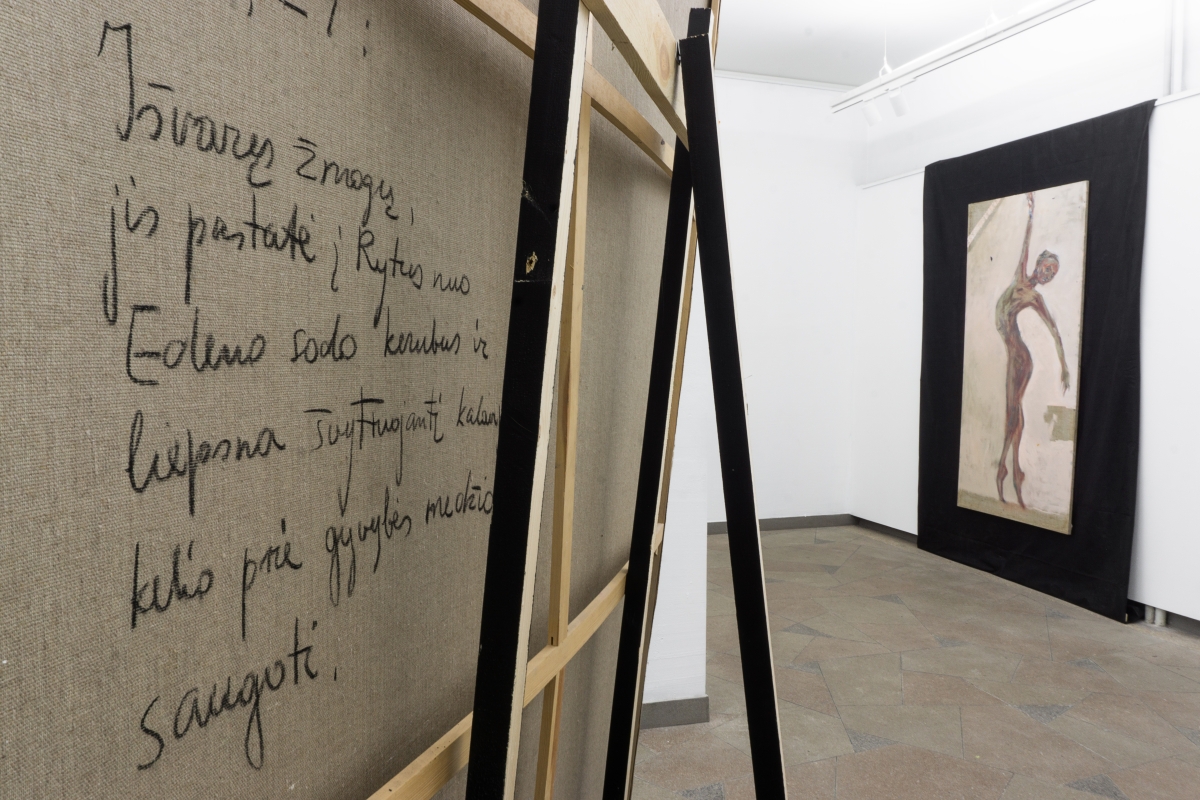 Išvaręs žmogų,
jis pastatė į Rytus nuo
Edeno sodo kerubus ir
liepsna švytruojantį kalav
kelio prie gyvybės medžio
saugoti.